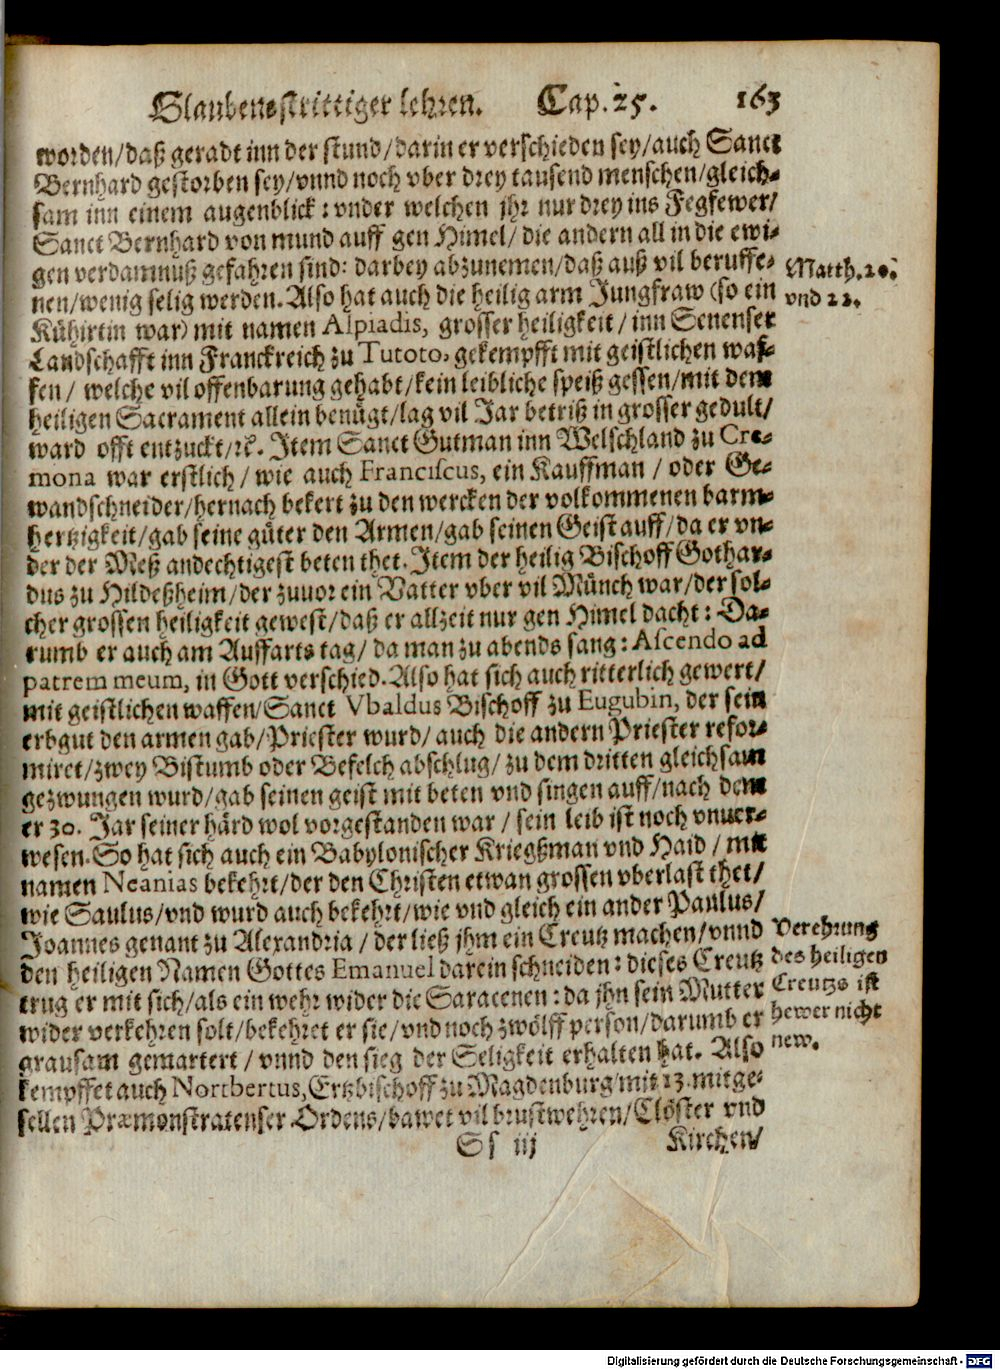 Glaubensstrittiger lehren. Cap. 25. 163
worden/daß geradt inn der stund/darin er verschieden sey/auch Sanct
Bernhard gestorben sey/vnnd noch vber drey tausend menschen/gleich-
sam inn einem augenblick: vnder welchen jhr nur drey ins Fegfewer/
Sanct Bernhard von mund auff gen Himel/ die andern all in die ewi-
gen verdamnuß gefahren sind: darbey abzunemen/daß auß vil beruffe-
nen/wenig selig werden. Also hat auch die heilig arm Jungfraw (so ein
Kühirtin war) mit namen Alpiadis, grosser heiligkeit / inn Senenser
Landschafft inn Franckreich zu Tutoto, gekempfft mit geistlichen waf-
fen / welche vil offenbarung gehabt/kein leibliche speiß gessen/mit dem
heiligen Sacrament allein benügt/lag vil Jar betriß in grosser gedult/
ward offt entzuckt/ꝛc. Item Sanct Gutman inn Welschland zu Cre-
mona war erstlich / wie auch Franciscus, ein Kauffman / oder Ge-
wandschneider/hernach bekert zu den wercken der volkommenen barm-
hertzigkeit/gab seine güter den Armen/gab seinen Geist auff/da er vn-
der der Meß andechtigest beten thet. Item der heilig Bischoff Gothar-
dus zu Hildeßheim/der zuuor ein Vatter vber vil Münch war/der sol-
cher grossen heiligkeit gewest/daß er allzeit nur gen Himel dacht: Da-
rumb er auch am Auffarts tag/ da man zu abends sang: Ascendo ad
patrem meum, in Gott verschied. Also hat sich auch ritterlich gewert/
mit geistlichen waffen/Sanct Vbaldus Bischoff zu Eugubin, der sein
erbgut den armen gab/Priester wurd/ auch die andern Priester refor-
miret/zwey Bistumb oder Befelch abschlug/ zu dem dritten gleichsam
gezwungen wurd/gab seinen geist mit beten vnd singen auff/nach dem
er 30. Jar seiner härd wol vorgestanden war / sein leib ist noch vnuer-
wesen. So hat sich auch ein Babylonischer Kriegßman vnd Haid / mit
namen Neanias bekehrt/der den Christen etwan grossen vberlast thet/
wie Saulus/vnd wurd auch bekehrt/wie vnd gleich ein ander Paulus/
Joannes genant zu Alexandria / der ließ jhm ein Creutz machen/vnnd
den heiligen Namen Gottes Emanuel darein schneiden: dieses Creutz
trug er mit sich/als ein wehr wider die Saracenen: da jhn sein Mutter
wider verkehren solt/bekehret er sie/vnd noch zwölff person/darumb er
grausam gemartert / vnnd den sieg der Seligkeit erhalten hat. Also
kempffet auch Nortbertus, Ertzbischoff zu Magdenburg/mit 13. mitge-
sellen Præmonstratenser Ordens/bawet vil brustwehren/Clöster vnd
Ss iij Kirchen/
Matth. 20.
vnd 22.
Verehrung
des heiligen
Creutzs ist
hewer nicht
new.
Digitalisierung gefördert durch die Deutsche Forschungsgemeinschaft - DFG